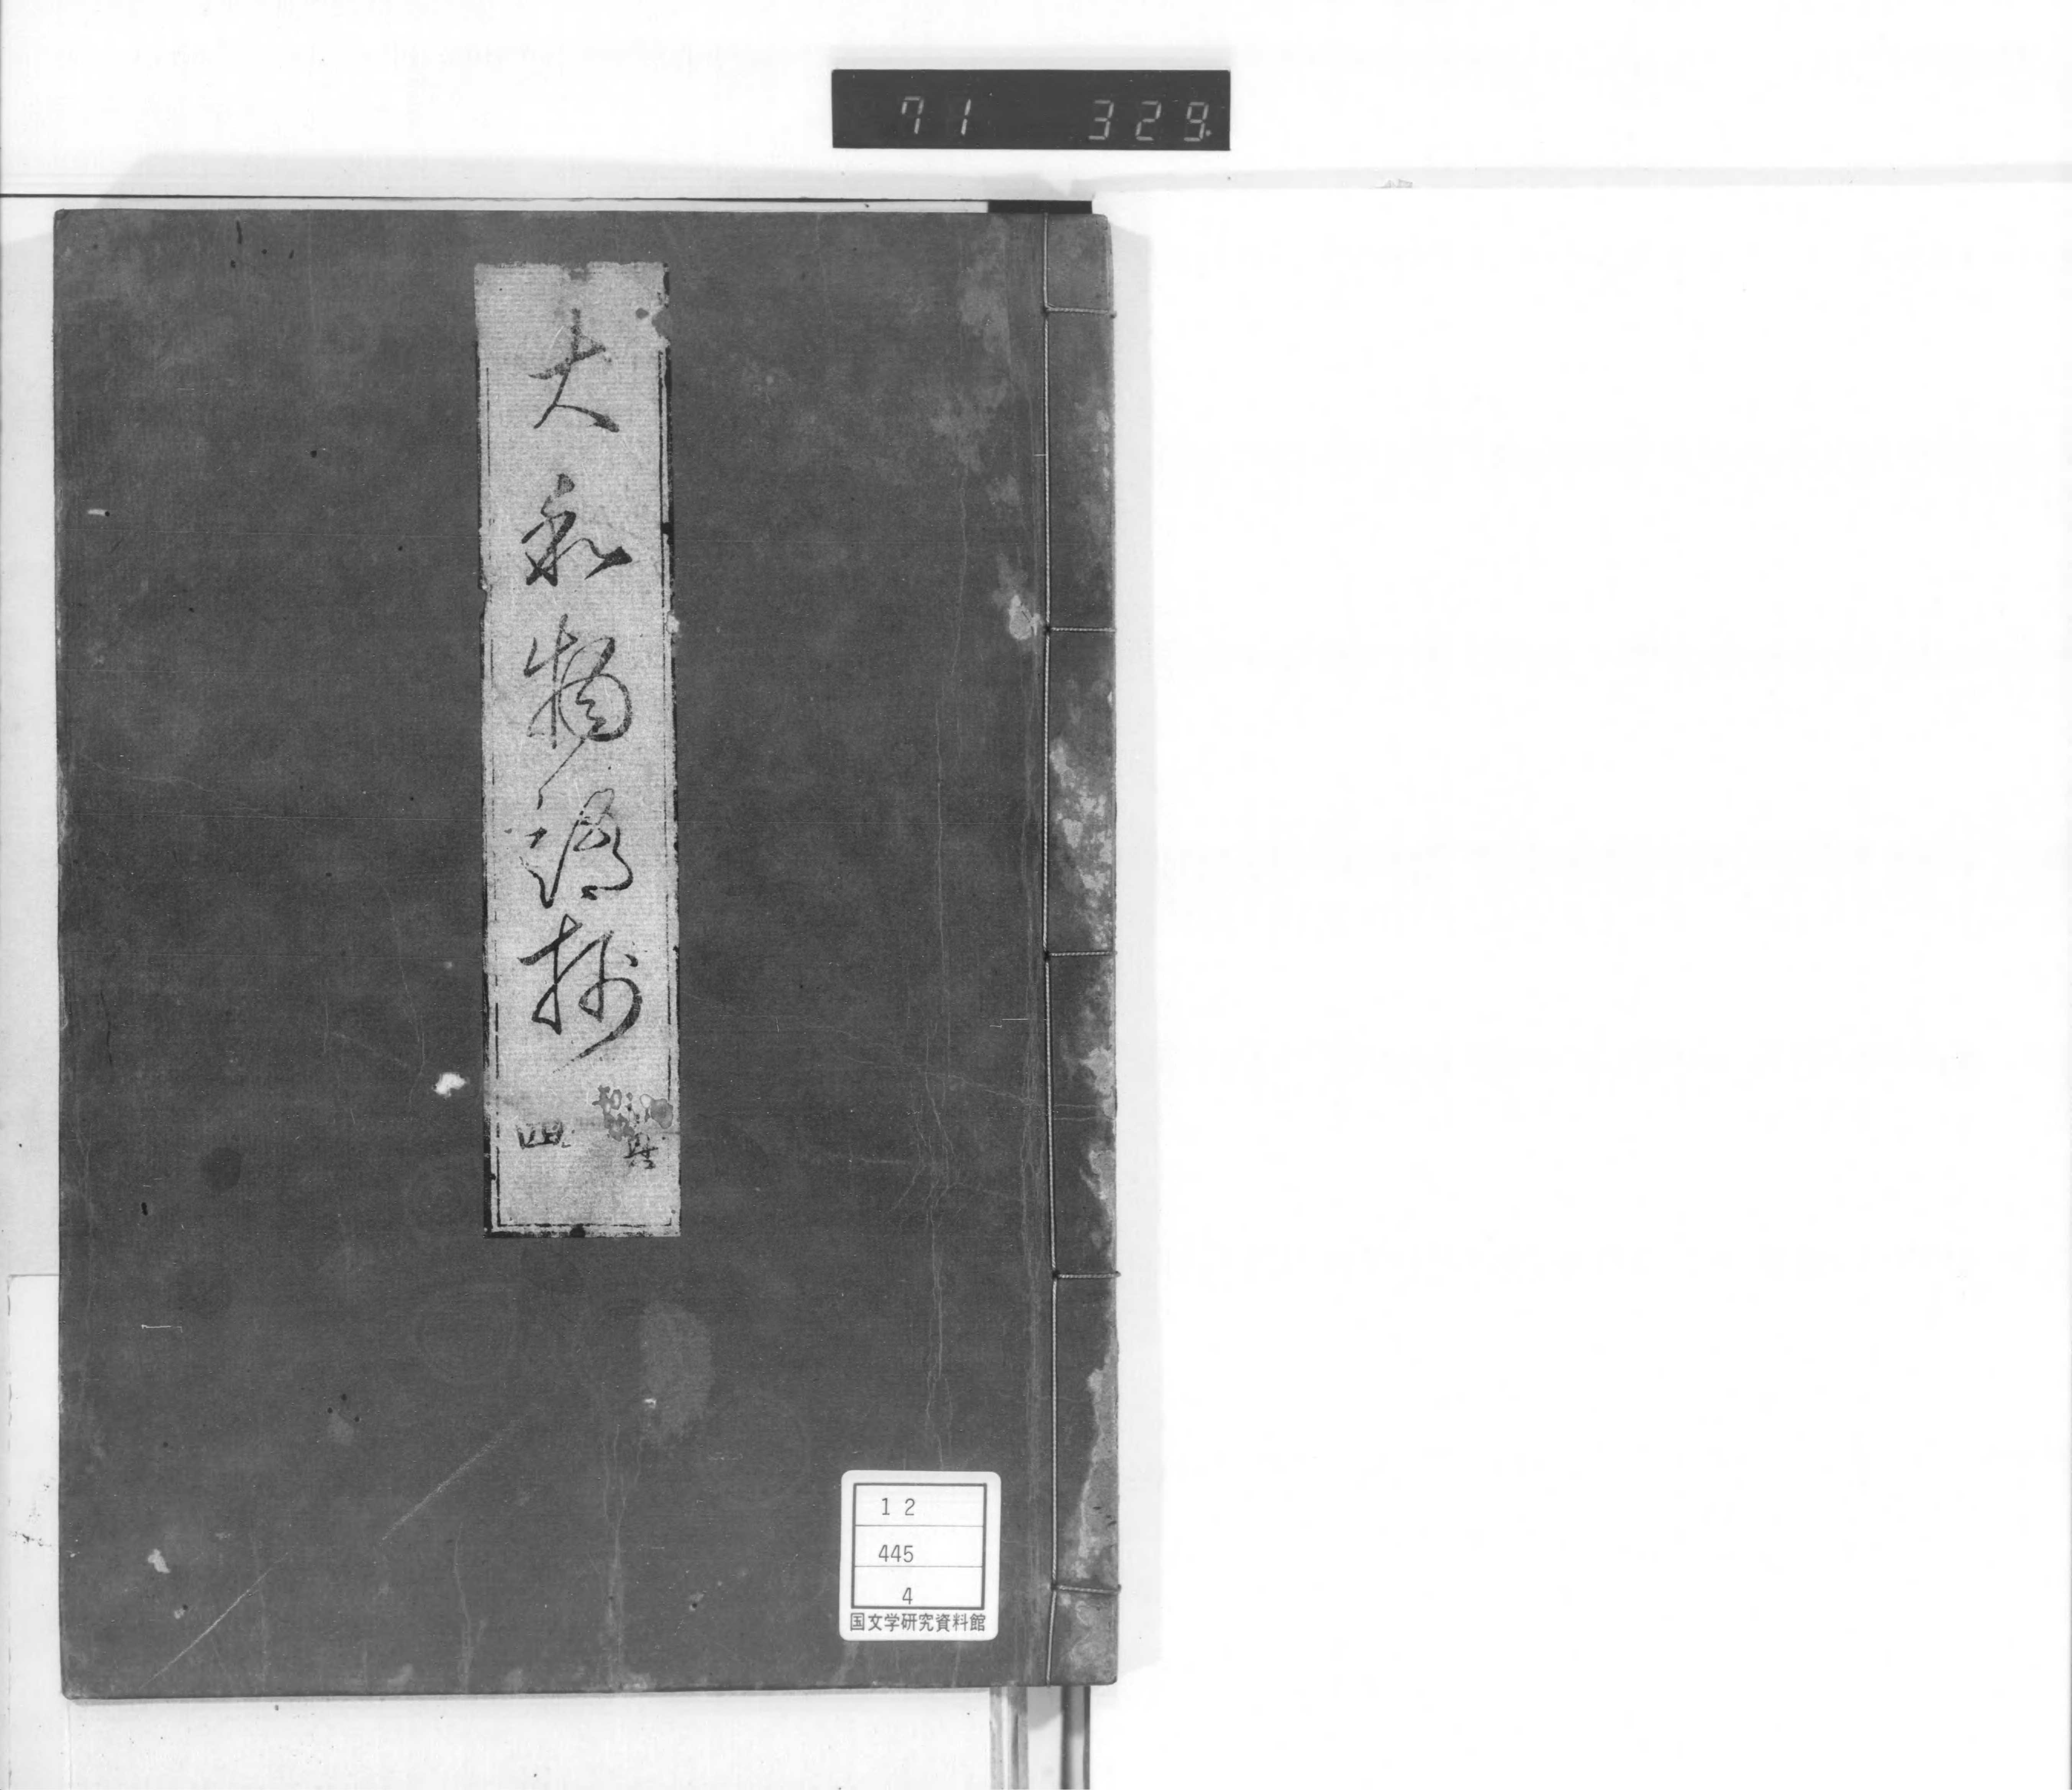 71 329.
大和物語抄
四
12
445
4
国文学研究資料館